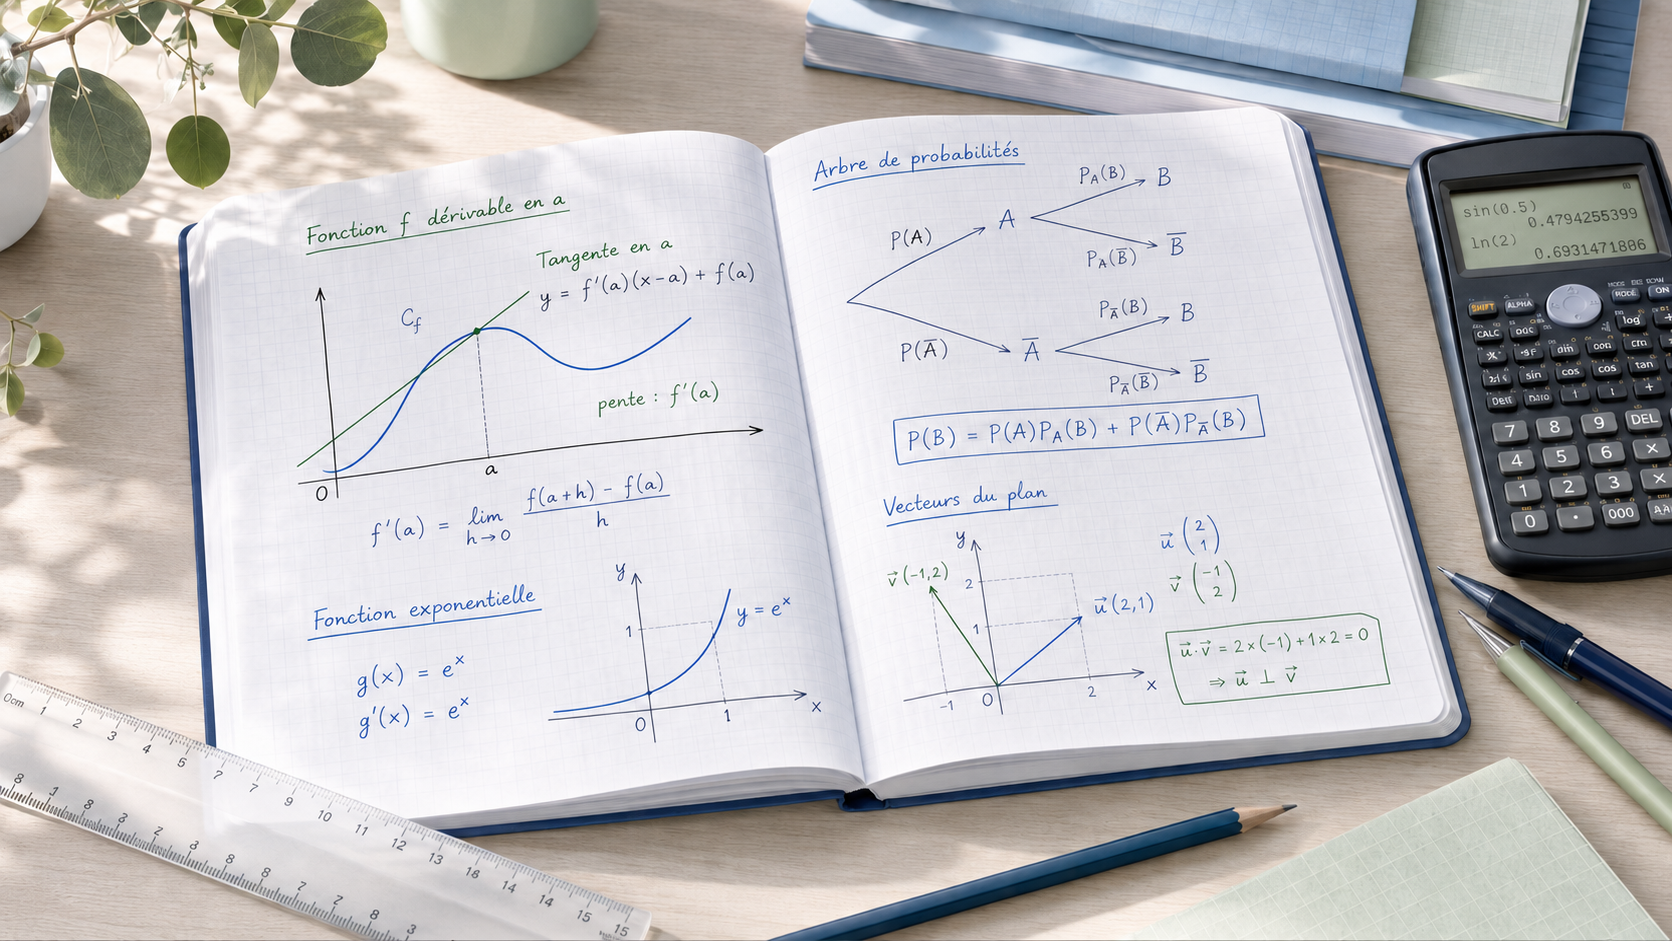 Fonction f dérivable en a
Tangente en a
y = f'(a)(x-a) + f(a)
C_f
pente : f'(a)
O
a
f'(a) = lim h→0 (f(a+h) - f(a)) / h
Fonction exponentielle
g(x) = e^x
g'(x) = e^x
y
1
y = e^x
0
1
x
Arbre de probabilités
P(A)
A
P_A(B)
B
P_A(B̅)
B̅
P(A̅)
A̅
P_A̅(B)
B
P_A̅(B̅)
B̅
P(B) = P(A)P_A(B) + P(A̅)P_A̅(B)
Vecteurs du plan
y
2
1
v⃗(-1,2)
u⃗(2,1)
-1
O
2
x
u⃗ (2 1)
v⃗ (-1 2)
u⃗·v⃗ = 2×(-1)+1×2=0
⇒ u⃗ ⊥ v⃗
sin(0.5)
0.4794255399
ln(2)
0.6931471806
SHIFT ALPHA MODE ON
CALC log
sin cos cos tan
7 8 9 DEL
4 5 6 ×
1 2 3 ×
0 · 000
0cm 1 2 3 4 5 6 7 7 9 10 11 12 13 16 14 14 15 15
8 8 3 2 3 8 8 7 7 8 3